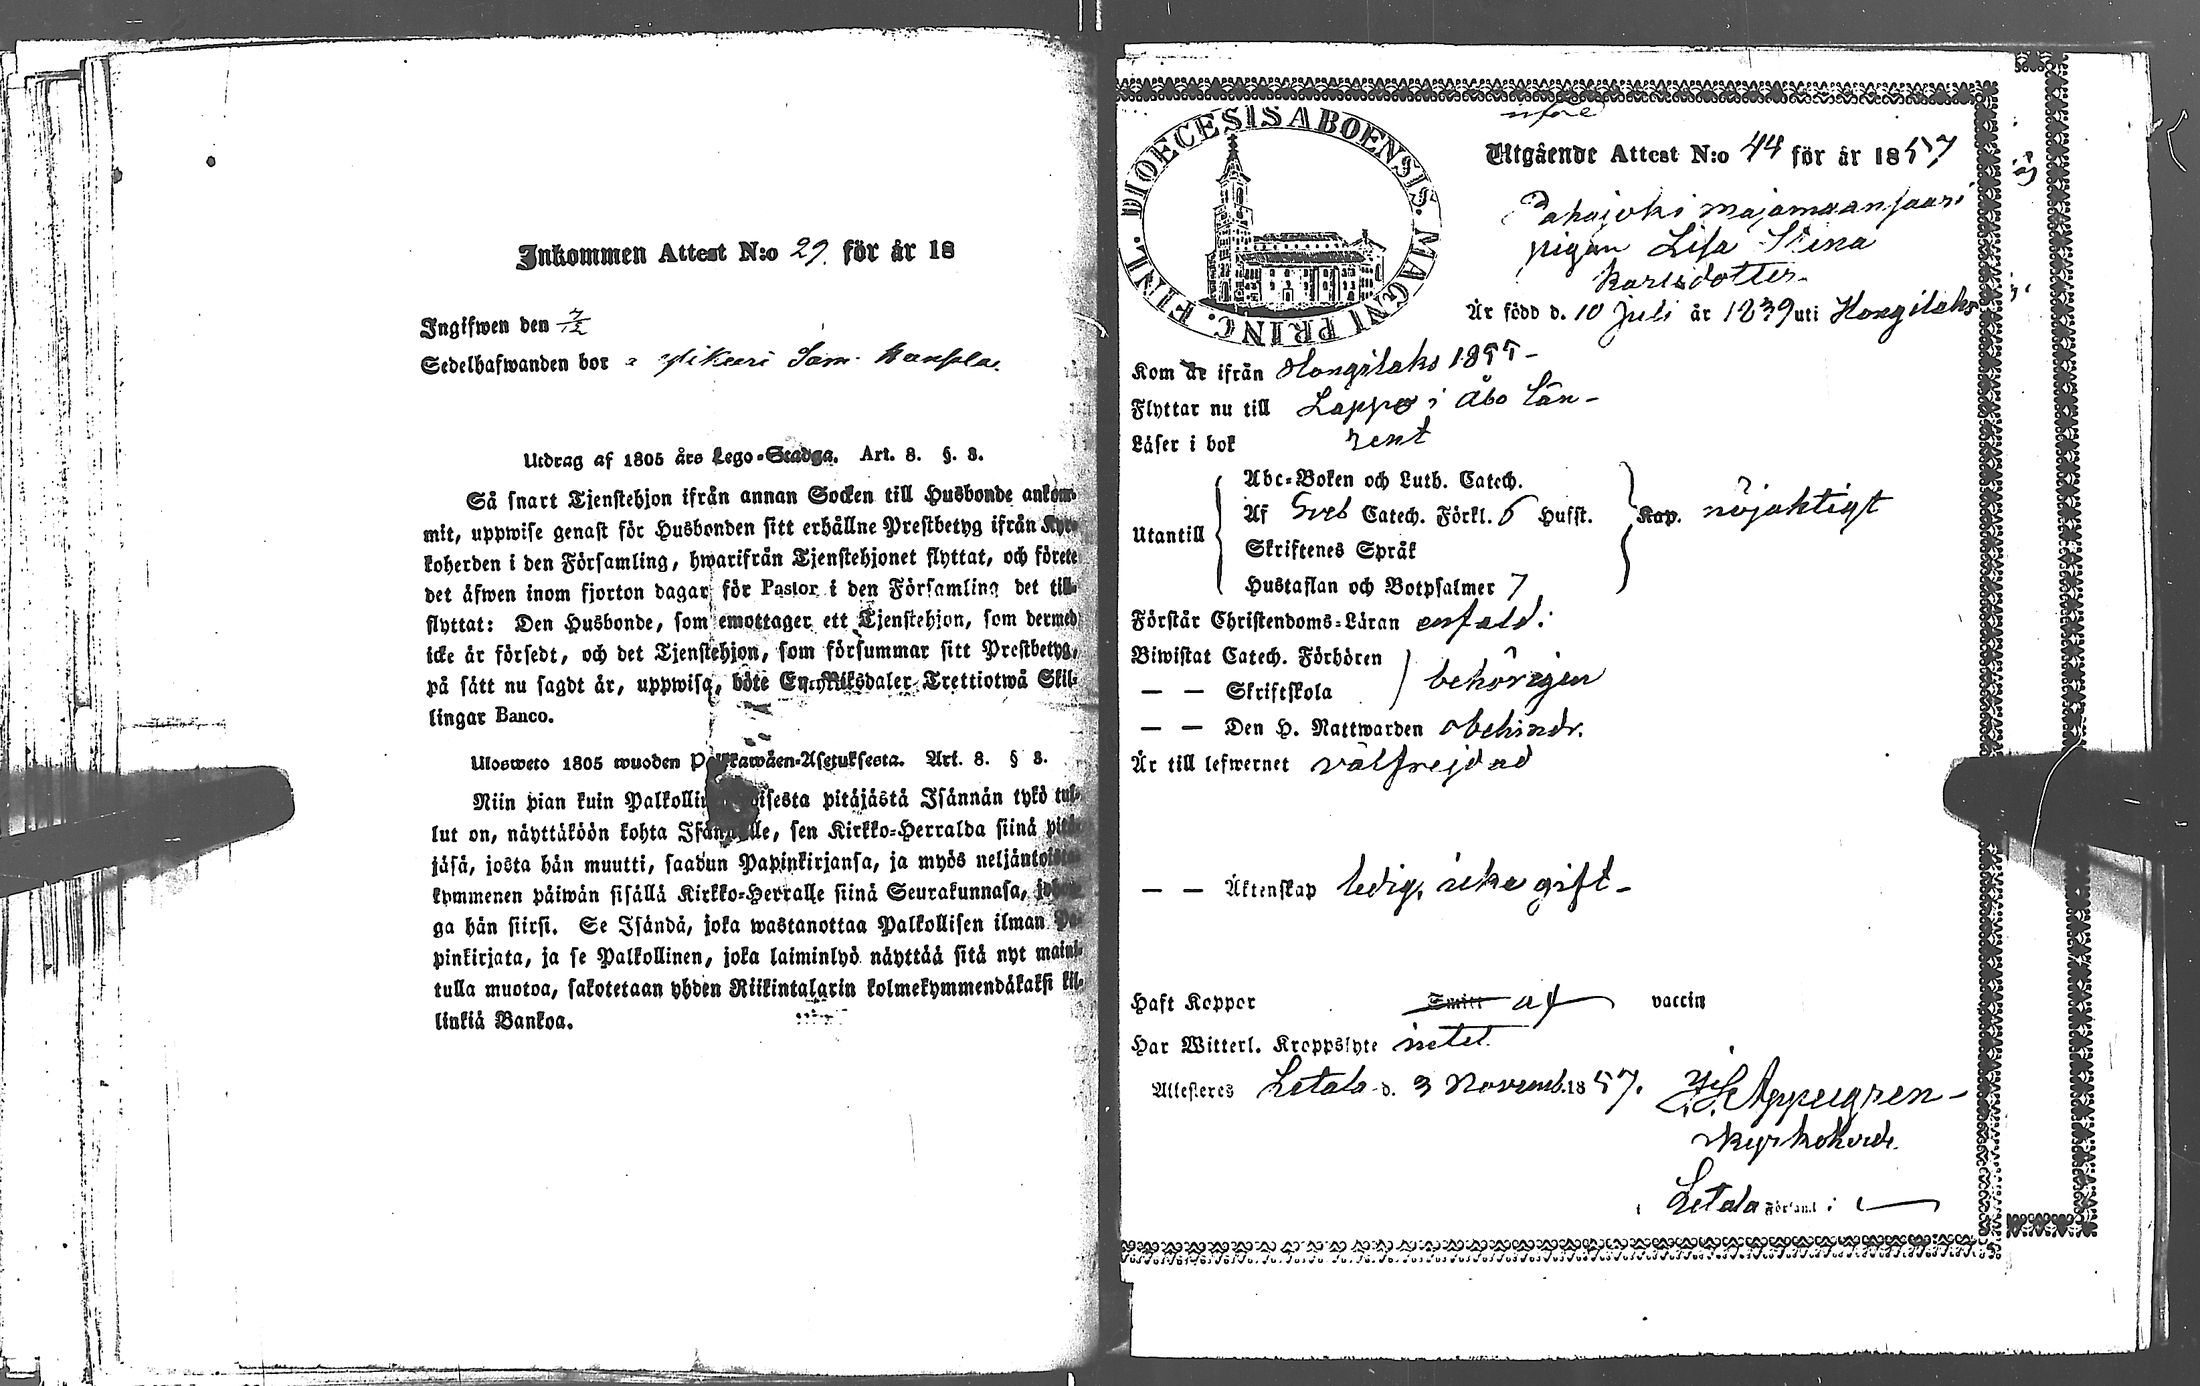 Inkommen Attest N:o 29. för år 18
Ingifwen den 7/12
Sedelhafwanden bor
Utdrag af 1805 års Lego-Stadga. Art. 8. §. 8.
Så snart Tjenstehjon ifrån annan Socken till Husbonde ankom-
mit, uppwise genast för Husbonden sitt erhållne Prestbetyg ifrån Kyr-
koherden i den Församling, hwarifrån Tjenstehjonet flyttat, och förete
det äfwen inom fjorton dagar för Pastor i den Församling det till-
flyttat: Den Husbonde, som emottager ett Tjenstehjon, som dermed
icke är försedt, och det Tjenstehjon, som försummar sitt Prestbetyg,
på sätt nu sagdt är, uppwisa, böte En Riksdaler Trettiotwå Skil-
lingar Banco.
Ulosweto 1805 wuoden Palkkawäen-Asetuksesta. Art. 8. § 8.
Niin pian kuin Palkollinen toisesta pitäjästä Isännän tykö tul-
lut on, näyttäköön kohta Isännälle, sen Kirkko-Herralda siinä pitä-
jäsä, josta hän muutti, saadun Papinkirjansa, ja myös neljäntoista
kymmenen päiwän sisällä Kirkko-Herralle siinä Seurakunnasa, johon-
ga hän siirsi. Se Isändä, joka wastanottaa Palkollisen ilman Pa-
pinkirjata, ja se Palkollinen, joka laiminlyö näyttää sitä nyt maini-
tulla muotoa, sakotetaan yhden Riikintalarin kolmekymmendäkaksi kil-
linkiä Bankoa.
FINL. DIOECESIS ABOENSIS. MAGNI PRINC.
Utgående Attest N:o 44 för år 1857
pigan Lisa Stina
Karlsdotter
Är född d. 10 Juli år 1839 uti Hongilaks
Kom är ifrån Hongilaks 1855
Flyttar nu till Lappo i Åbo Län
Läser i bok rent
Utantill
Abc-Boken och Luth. Catech.
Af Sveb Catech. Förkl. 6 Hufst.
Skriftenes Språk
Hustaflan och Botpsalmer 7
Kap. nöjaktigt
Förstår Christendoms-Läran enfald:
Biwistat Catech. Förhören
— — Skriftskola
behörigen
— — Den H. Nattwarden obehindr.
Är till lefwernet välfrejdad
— — Äktenskap ledig, icke gift
Haft Koppor Smitt af vaccin
Har Witterl. Kroppslyte intet
Attesteres Letala d. 3 Novemb. 1857.
Appelgren
Kyrkoherde
i Letala Församl: